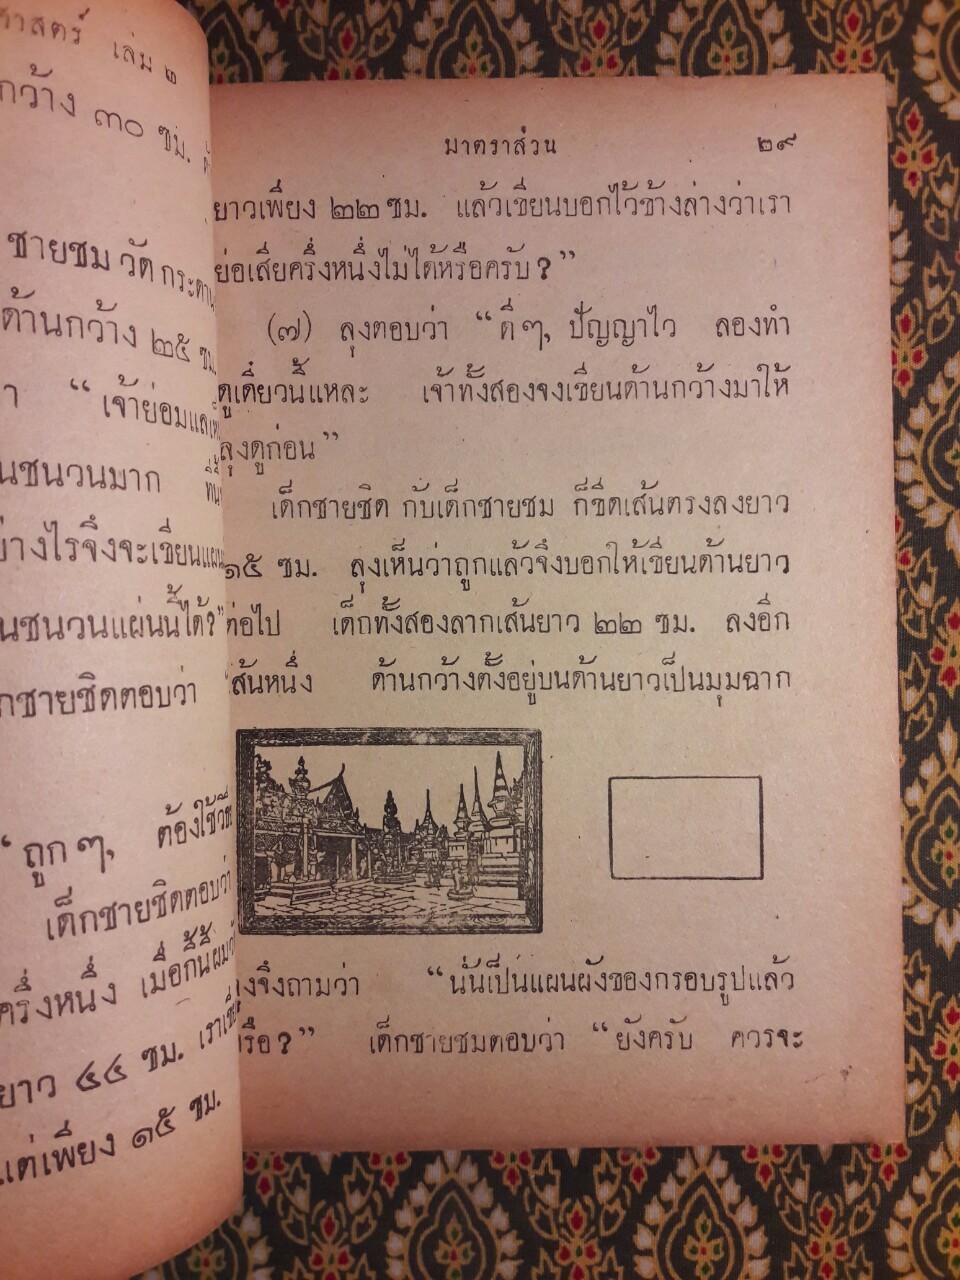 ราสตร์ เล่ม ๑
กว้าง ๓๐ ซม.
ชายชม วัด กระดาน
ด้านกว้าง ๒๕ ซม.
“เจ้าย่อมแล
นชนวนมาก
ย่างไรจึงจะเขียนแผน
นชนวนแผ่นนี้ได้?”
กชายชิดตอบว่า
“ถูก ๆ, ต้องใช้วิธี
เด็กชายชิดตอบว่า
ครึ่งหนึ่ง เมื่อกี้นี้ผม
ยาว ๔๔ ซม. เรา
แต่เพียง ๑๕ ซม.
มาตราส่วน ๒๙
ยาวเพียง ๒๒ ซม. แล้วเขียนบอกไว้ข้างล่างว่าเรา
ย่อเสียครึ่งหนึ่งไม่ได้หรือครับ?”
(๗) ลุงตอบว่า “ดีๆ, ปัญญาไว ลองทำ
ดูเดี๋ยวนี้แหละ เจ้าทั้งสองจงเขียนด้านกว้างมาให้
ลุงดูก่อน”
เด็กชายชิด กับเด็กชายชม ก็ขีดเส้นตรงลงยาว
๑๕ ซม. ลุงเห็นว่าถูกแล้วจึงบอกให้เขียนด้านยาว
ต่อไป เด็กทั้งสองลากเส้นยาว ๒๒ ซม. ลงอีก
ส้นหนึ่ง ด้านกว้างตั้งอยู่บนด้านยาวเป็นมุมฉาก
งจึงถามว่า “นั่นเป็นแผนผังของกรอบรูปแล้ว
รือ?” เด็กชายชมตอบว่า “ยังครับ ควรจะ